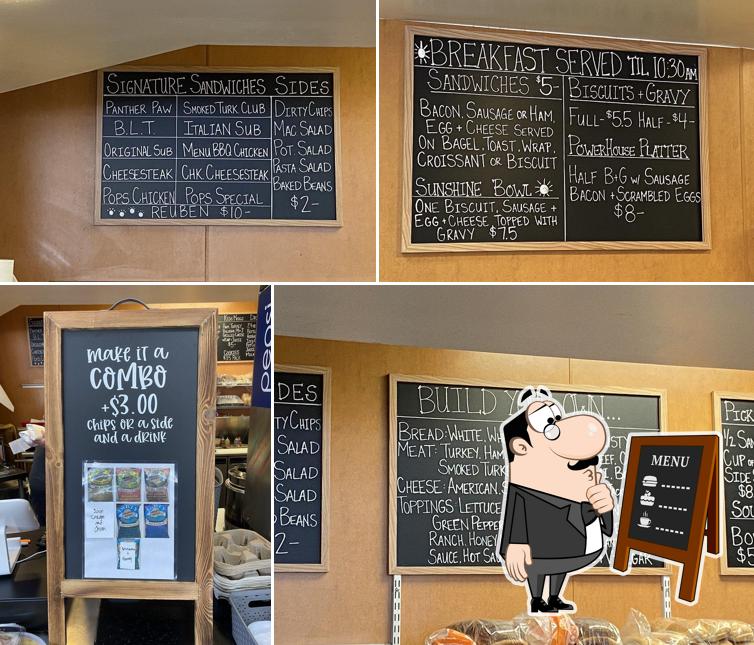 SIGNATURE SANDWICHES SIDES
PANTHER PAW
SMOKED TURK. CLUB
B.L.T.
ITALIAN SUB
ORIGINAL SUB
MENU BBQ CHICKEN
CHEESESTEAK
CHK. CHEESESTEAK
POPS CHICKEN
POPS SPECIAL
REUBEN $10-
DIRTY CHIPS
MAC SALAD
POT. SALAD
PASTA SALAD
BAKED BEANS
$2-
BREAKFAST SERVED 'TIL 10:30AM
SANDWICHES $5-
BACON, SAUSAGE OR HAM,
EGG + CHEESE SERVED
ON BAGEL, TOAST, WRAP,
CROISSANT OR BISCUIT
SUNSHINE BOWL
ONE BISCUIT, SAUSAGE +
EGG + CHEESE TOPPED WITH
GRAVY $7.5
BISCUITS + GRAVY
FULL- $5.5 HALF- $4-
POWERHOUSE PLATTER
HALF B+G W/ SAUSAGE
BACON + SCRAMBLED EGGS
$8-
make it a
COMBO
+$3.00
chips or a side
and a drink
DES
TY CHIPS
SALAD
SALAD
SALAD
BEANS
2-
BUILD YO OWN...
BREAD: WHITE, WH
MEAT: TURKEY, HAM
SMOKED TURK
CHEESE: AMERICAN, S
TOPPINGS: LETTUCE
GREEN PEPPE
RANCH, HONEY
SAUCE, HOT SAU
PICK
1/2 SAN
CUP OF
SIDE
$8
SOU
BOW
$5
MENU